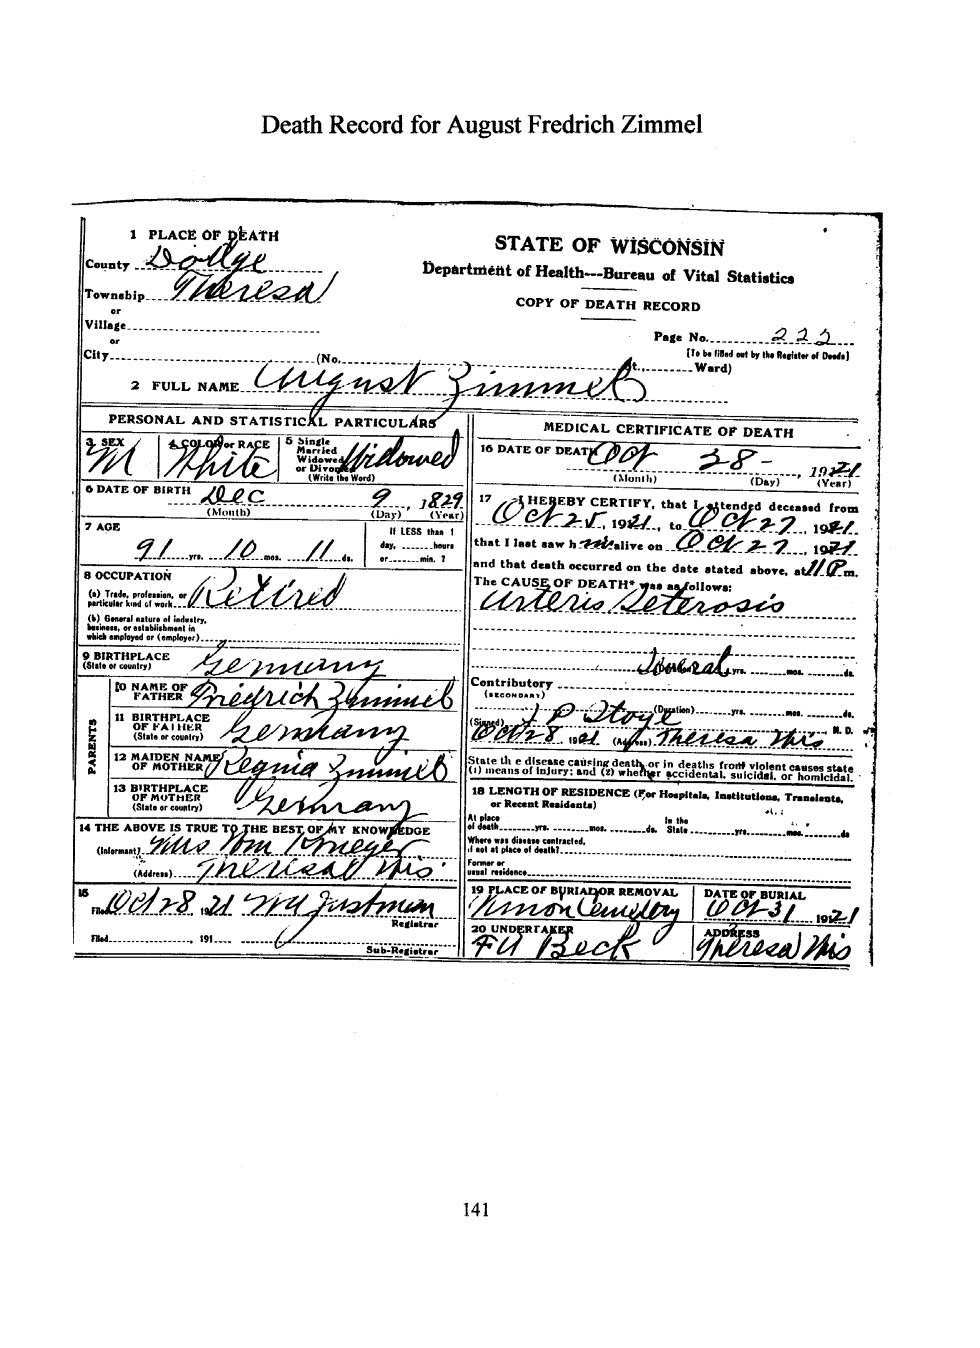 Death Record for August Fredrich Zimmel
1 PLACE OF DEATH
County Dodge
Township Theresa
or
Village
or
City (No. St., Ward)
STATE OF WISCONSIN
Department of Health---Bureau of Vital Statistics
COPY OF DEATH RECORD
Page No. 222
[To be filled out by the Register of Deeds]
2 FULL NAME August Zimmel
PERSONAL AND STATISTICAL PARTICULARS
3 SEX M 4 COLOR or RACE White 5 Single Married Widowed or Divorced (Write the Word) Widowed
6 DATE OF BIRTH Dec 9, 1829
(Month) (Day) (Year)
7 AGE 91 yrs. 10 mos. 11 ds.
If LESS than 1 day, hours or min. ?
8 OCCUPATION
(a) Trade, profession, or particular kind of work Retired
(b) General nature of industry, business, or establishment in which employed or (employer)
9 BIRTHPLACE (State or country) Germany
PARENTS
10 NAME OF FATHER Friedrich Zimmel
11 BIRTHPLACE OF FATHER (State or country) Germany
12 MAIDEN NAME OF MOTHER Regina Zimmel
13 BIRTHPLACE OF MOTHER (State or country) Germany
14 THE ABOVE IS TRUE TO THE BEST OF MY KNOWLEDGE
(Informant) Mrs Wm Krueger
(Address) Theresa Wis
15 Filed Oct 28 1921 Justman
Registrar
Filed , 191
Sub-Registrar
MEDICAL CERTIFICATE OF DEATH
16 DATE OF DEATH Oct 28- 1921
(Month) (Day) (Year)
17 I HEREBY CERTIFY, that I attended deceased from
Oct 25, 1921, to Oct 27 1921
that I last saw h im alive on Oct 27, 1921
and that death occurred on the date stated above, at 11 P m.
The CAUSE OF DEATH* was as follows:
Arterio Sclerosis
Several yrs. mos. ds.
Contributory
(SECONDARY)
(Duration) yrs. mos. ds.
(Signed) J P Stoye M. D.
Oct 28 1921 (Address) Theresa Wis
State the disease causing death, or in deaths from violent causes state
(1) means of injury; and (2) whether accidental, suicidal, or homicidal.
18 LENGTH OF RESIDENCE (For Hospitals, Institutions, Transients,
or Recent Residents)
At place of death yrs. mos. ds. In the State yrs. mos. ds
Where was disease contracted,
if not at place of death?
Former or
usual residence
19 PLACE OF BURIAL OR REMOVAL Union Cemetery DATE OF BURIAL Oct 31 1921
20 UNDERTAKER Beck ADDRESS Theresa Wis
141